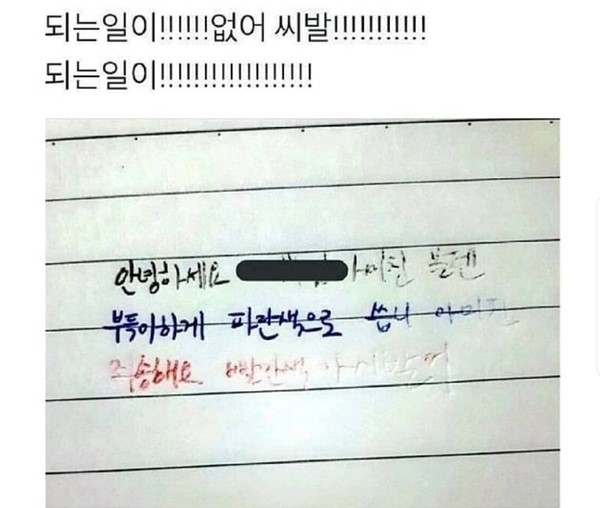 되는일이!!!!!!!없어 씨발!!!!!!!!!!!
되는일이!!!!!!!!!!!!!!!!!!!
안녕하세요 아미친 볼덴
부득이하게 파란색으로 씁니 아미친
죄송해요 빨간색 아시발